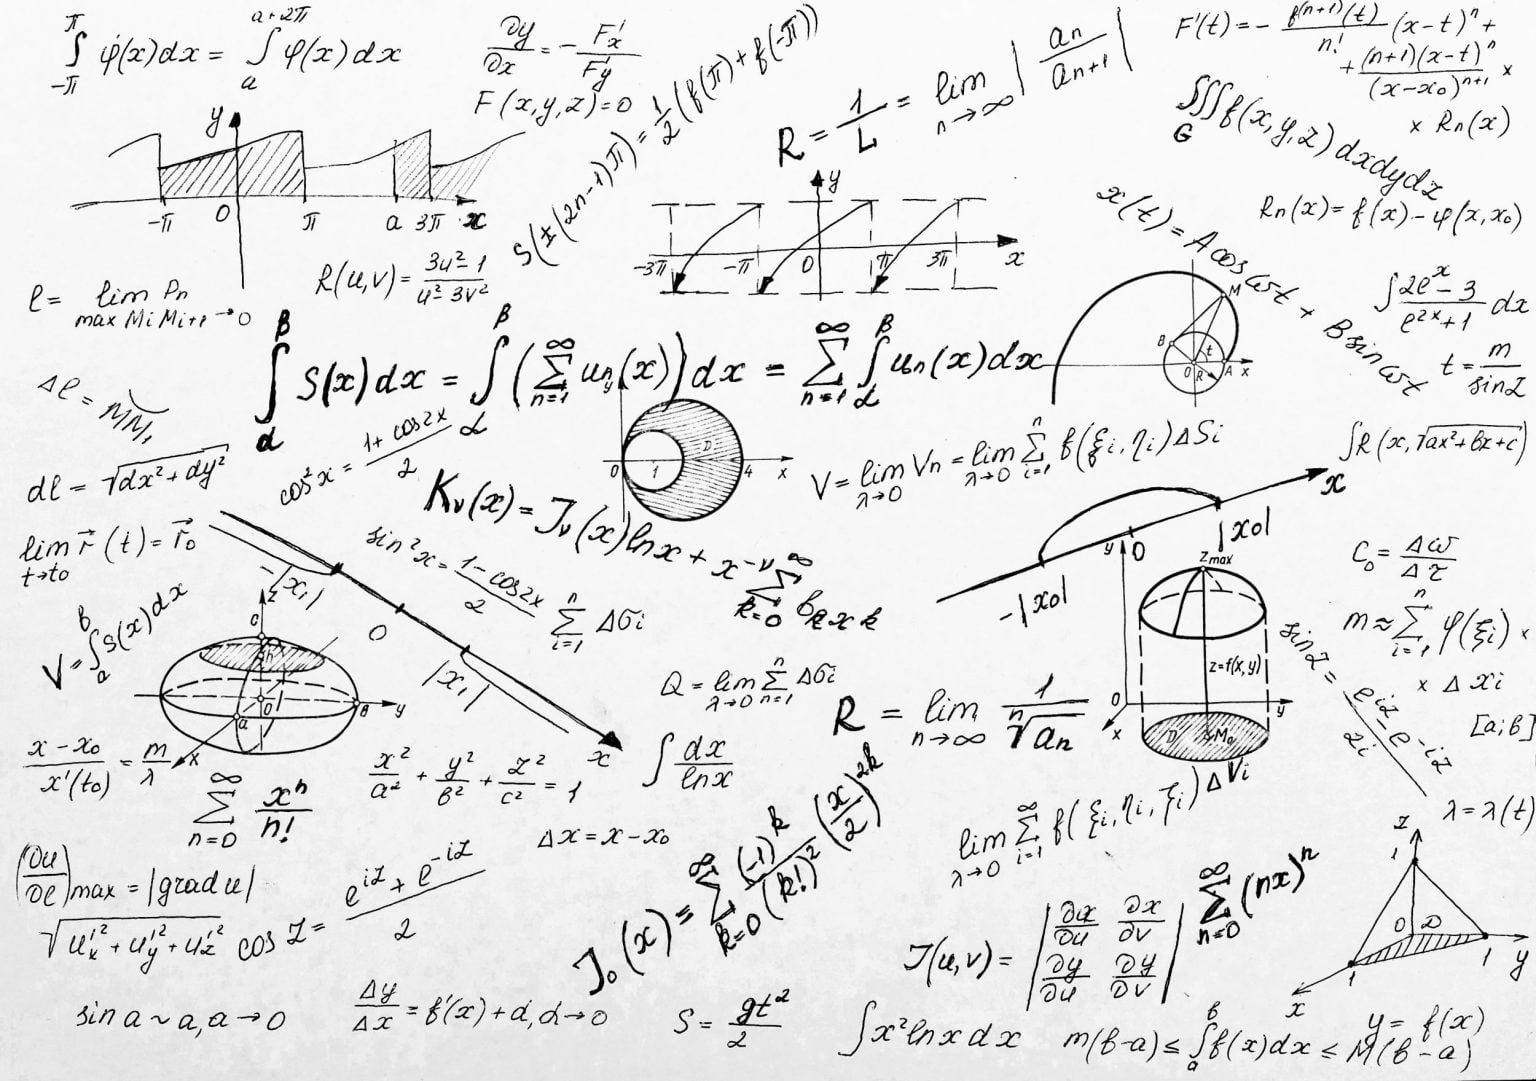 ∫_{-π}^{π} φ(x)dx = ∫_{a}^{a+2π} φ(x)dx
∂y/∂x = - F'x/F'y
F(x,y,z)=0
S(±(2n-1)π) = 1/2 (f(π)+f(-π))
R = 1/L = lim_{n→∞} |an/an+1|
F'(t) = - f^(n+1)(t)/n! (x-t)^n +
+ (n+1)(x-t)^n/(x-x0)^{n+1} ×
× Rn(x)
∫∫∫_G f(x,y,z) dxdydz
Rn(x) = f(x) - φ(x,x0)
y
-π 0 π a 3π x
y
-3π -π 0 π 3π x
x(t) = A cos ωt + B sin ωt
M
B t
0 R A x
R(u,v) = 3u²-1/u²-3v²
ℓ = lim Pn
max MiMi+1→0
∫ 2e^x-3/e^{2x}+1 dx
t = m/sinz
∫_α^β S(x)dx = ∫_α^β (∑_{n=1}^∞ un(x))dx = ∑_{n=1}^∞ ∫_α^β un(x)dx
Δℓ = MM1
dℓ = √dx²+dy²
cos²x = 1+cos2x/2
y
0 1 D 4 x
V = lim_{λ→0} Vn = lim_{λ→0} ∑_{i=1}^n f(ξi,ηi)ΔSi
∫R(x,√ax²+bx+c)
Kν(x) = Jν(x)lnx + x^{-ν} ∑_{k=0}^∞ bk x k
lim_{t→t0} r⃗(t) = r⃗0
sin²x = 1-cos2x/2
∑_{i=1}^n Δσi
-|x1| 0 |x1| x
-|x0| 0 |x0| x
C0 = Δω/Δτ
m≈∑_{i=1}^n φ(ξi) ×
× Δxi
[a;b]
V = ∫_a^b S(x)dx
z
c
h
0
a B y
x
z max
y
z=f(x,y)
0 y
x
D M0
sinz = e^{iz}-e^{-iz}/2i
Q = lim_{λ→0} ∑_{n=1}^n Δσi
R = lim_{n→∞} 1/ⁿ√an
x-x0/x'(t0) = m/λ
∑_{n=0}^∞ x^n/n!
x²/a² + y²/b² + z²/c² = 1
∫ dx/lnx
Δx = x-x0
lim_{λ→0} ∑_{i=1}^∞ f(ξi,ηi,ζi)ΔVi
λ=λ(t)
(∂u/∂ℓ)max = |grad u|
√u'x²+u'y²+u'z²
cos z = e^{iz}+e^{-iz}/2
J0(x) = ∑_{k=0}^∞ (-1)^k/(k!)² (x/2)^{2k}
J(u,v) = |∂x/∂u ∂x/∂v
∂y/∂u ∂y/∂v|
∑_{n=0}^∞ (nx)^n
z
1
0 D
1 1 y
x
sin a ~ a, a→0
Δy/Δx = f'(x)+α, α→0
S = gt²/2
∫x²lnxdx
m(b-a) ≤ ∫_a^b f(x)dx ≤ M(b-a)
y = f(x)